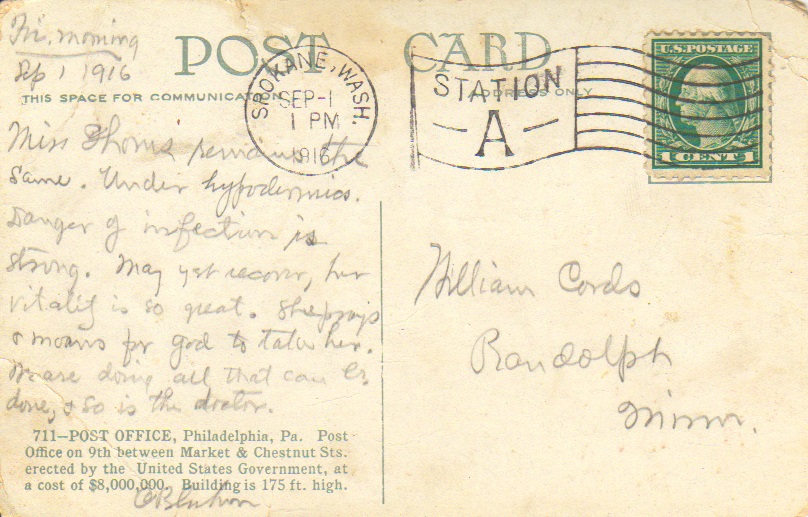 Fri. morning
Sep 1 1916
POST CARD
THIS SPACE FOR COMMUNICATION
ADDRESS ONLY
SPOKANE, WASH.
SEP-1
1 PM
1916
STATION
A
U.S. POSTAGE
1 CENT 1
Miss remains the
same. Under hypodermics.
Danger of infection is
strong. May yet recover, her
vitality is so great. She prays
& moans for god to take her.
We are doing all that can be
done, & so is the doctor.
711—POST OFFICE, Philadelphia, Pa. Post
Office on 9th between Market & Chestnut Sts.
erected by the United States Government, at
a cost of $8,000,000. Building is 175 ft. high.
William Cords
Randolph
Minn.